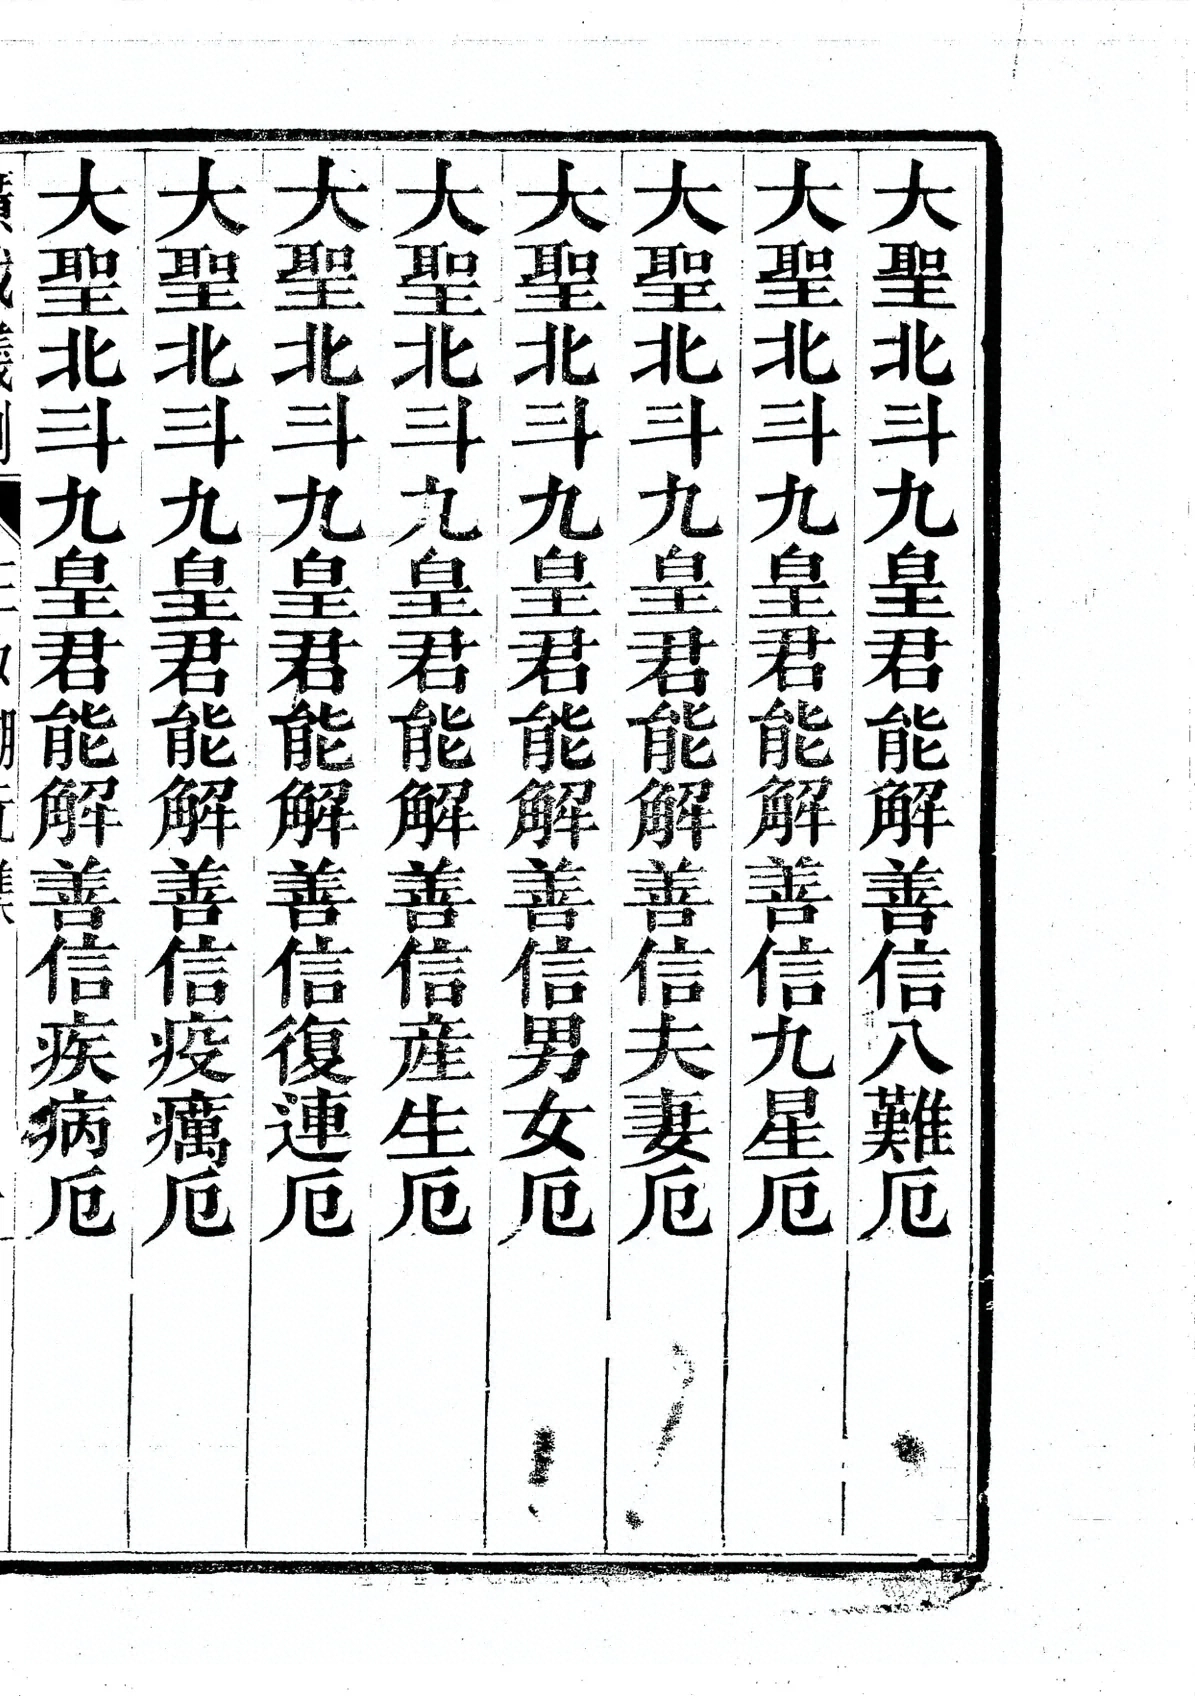 大聖北斗九皇君能解善信八難厄
大聖北斗九皇君能解善信九星厄
大聖北斗九皇君能解善信夫妻厄
大聖北斗九皇君能解善信男女厄
大聖北斗九皇君能解善信産生厄
大聖北斗九皇君能解善信復連厄
大聖北斗九皇君能解善信疫癘厄
大聖北斗九皇君能解善信疾病厄